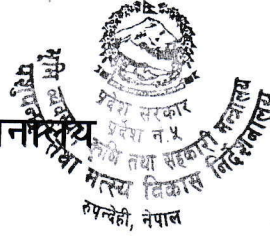 प्रदेश सरकार
प्रदेश नं. ५
भूमि व्यवस्था, कृषि तथा सहकारी मन्त्रालय
पशुपन्छी तथा मत्स्य विकास निर्देशनालय
रुपन्देही, नेपाल